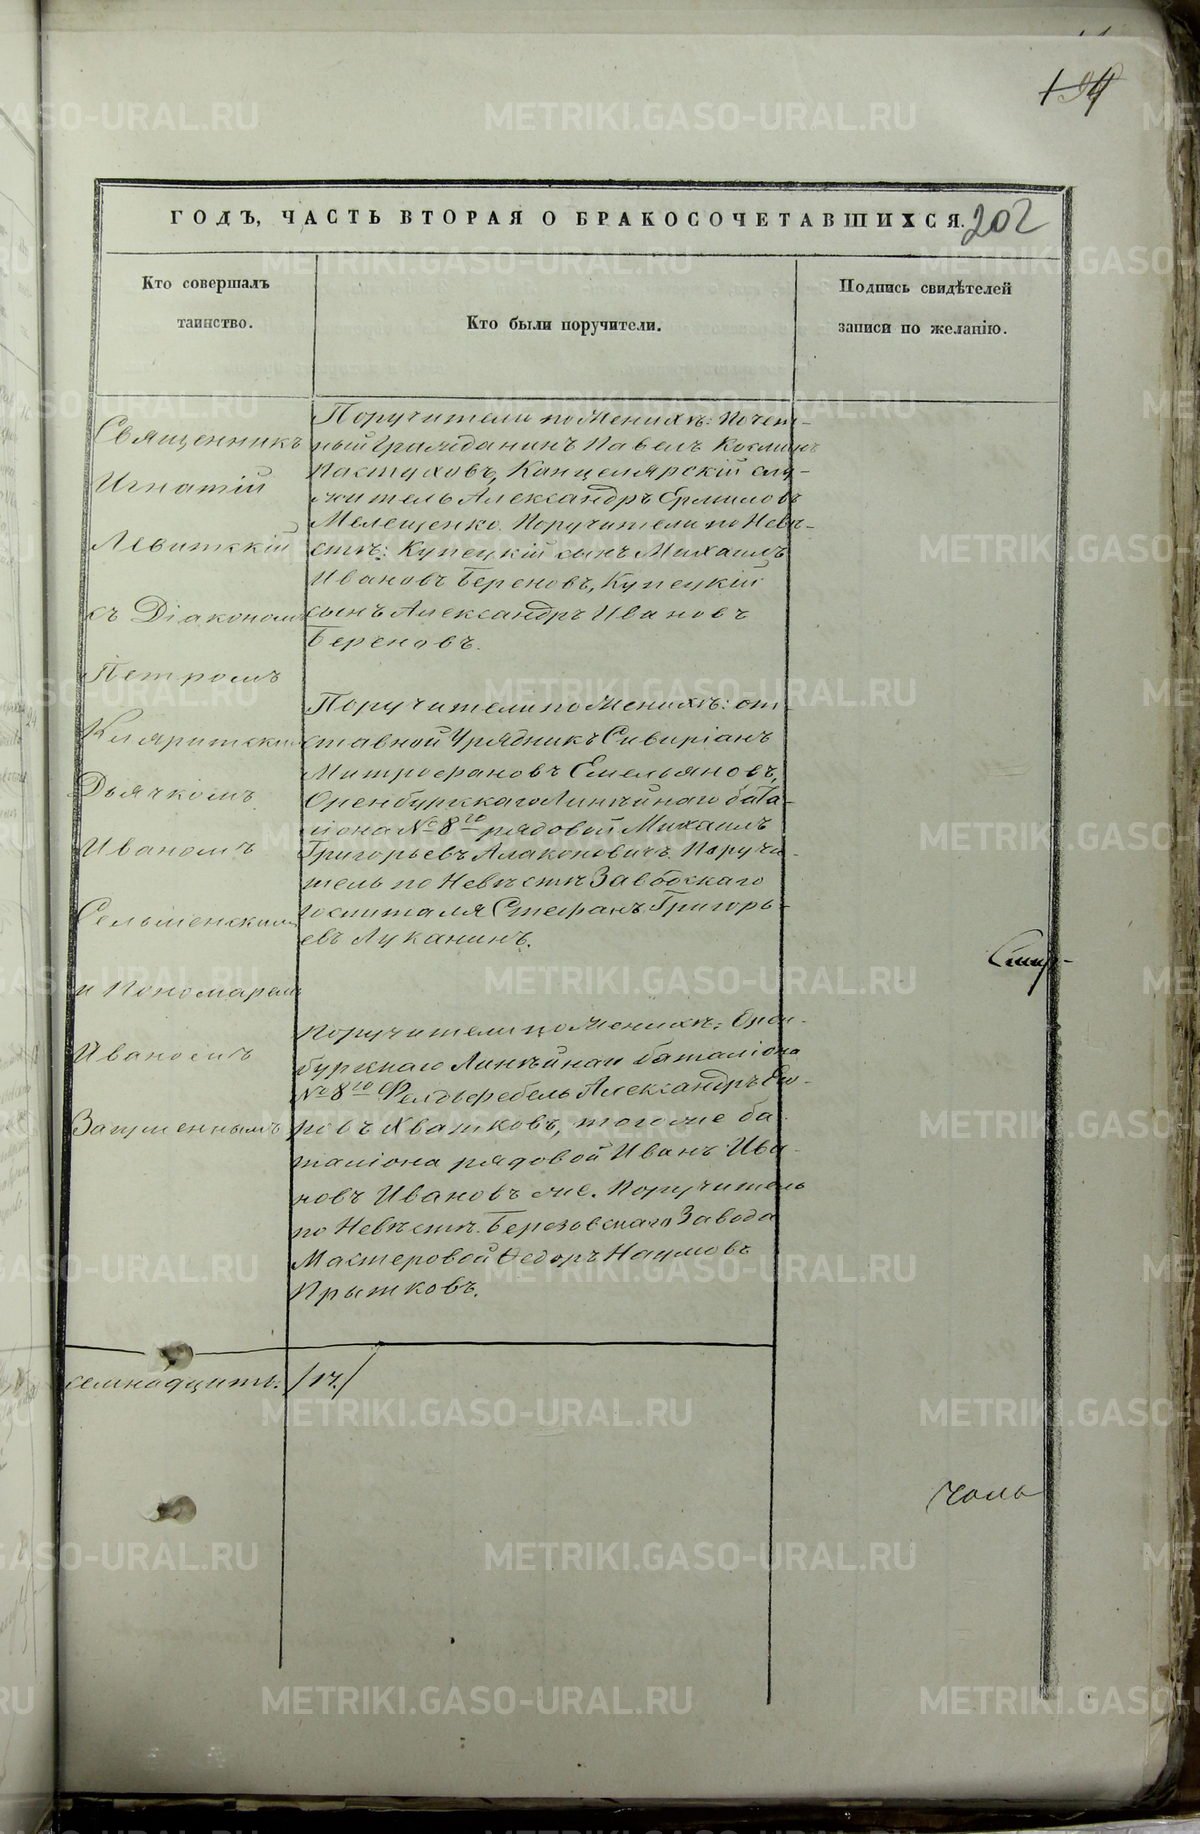 202
ГОДЪ, ЧАСТЬ ВТОРАЯ О БРАКОСОЧЕТАВШИХСЯ.
Кто совершалъ
таинство.
Кто были поручители.
Подпись свидѣтелей
записи по желанію.
Священникъ
Игнатій
Левитскій
съ Діакономъ
Петромъ
Дьячкомъ
Иваномъ
и Пономаремъ
Иваномъ
Поручители по Женихѣ: Почет-
ный Гражданинъ Павелъ Козминъ
Пастуховъ, Канцелярскій слу-
житель Александръ Ермиловъ
Мелещенко. Поручители по Невѣ-
стѣ: Купецкій сынъ Михаилъ
Ивановъ Береновъ, Купецкій
сынъ Александръ Ивановъ
Береновъ.
Поручители по Женихѣ: от-
ставной Урядникъ Сивиріанъ
Митрофановъ Емельяновъ,
Оренбургскаго Линѣйнаго бата-
ліона № 8го рядовой Михаилъ
Григорьевъ Поручи-
тель по Невѣстѣ Заводскаго
госпиталя Стефанъ Григорь-
евъ Луканинъ.
Поручители по Женихѣ: Орен-
бургскаго Линѣйнаго баталіона
№ 8го Фелдьфебель Александръ Его-
ровъ Хватковъ, тогоже ба-
таліона рядовой Иванъ Ива-
новъ Ивановъ же. Поручитель
по Невѣстѣ Березовскаго Завода
Мастеровой Ѳедоръ Наумовъ
Прытковъ.
семнадцать. /17./
METRIKI.GASO-URAL.RU